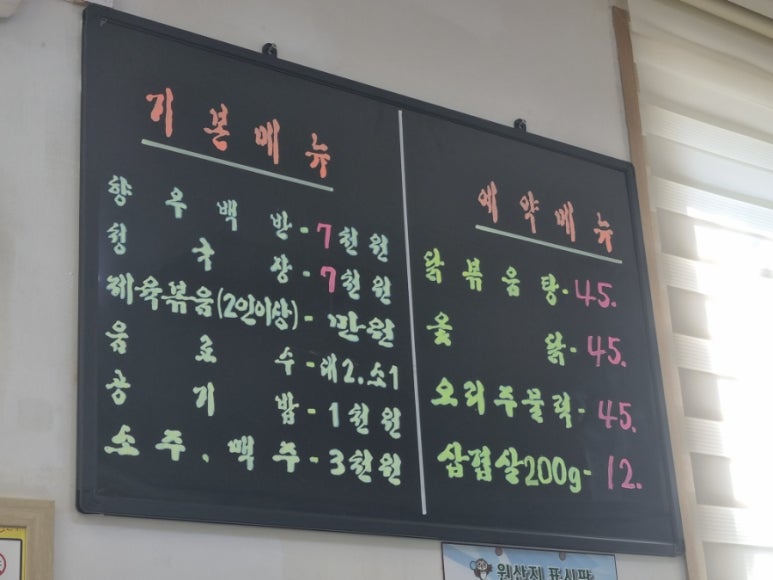 기본메뉴
향우백반-7천원
청국장-7천원
제육볶음(2인이상)-만원
음료수-대2.소1
공기밥-1천원
소주.맥주-3천원
예약메뉴
닭볶음탕-45.
옻닭-45.
오리주물럭-45.
삼겹살200g-12.
원산지 표시판